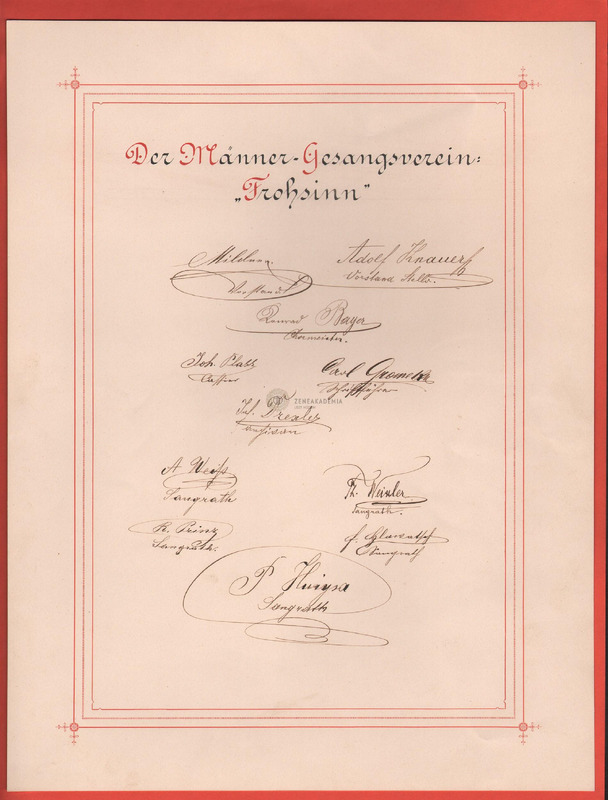 Der Männer-Gesangsverein:
„Frohsinn“
Vorstand
Adolf Knauer
Vorstand Stellv.
Konrad Bayer
Chormeister.
Joh. Platz
Cassier
Carl
Schriftführer
ZENEAKADEMIA
LISZT MÚZEUM
Archivar
A. Weiss
Sangrath
Th. Weixler
Sangrath.
R. Prinz
Sangrath.
F.
Sangrath
Sangrath